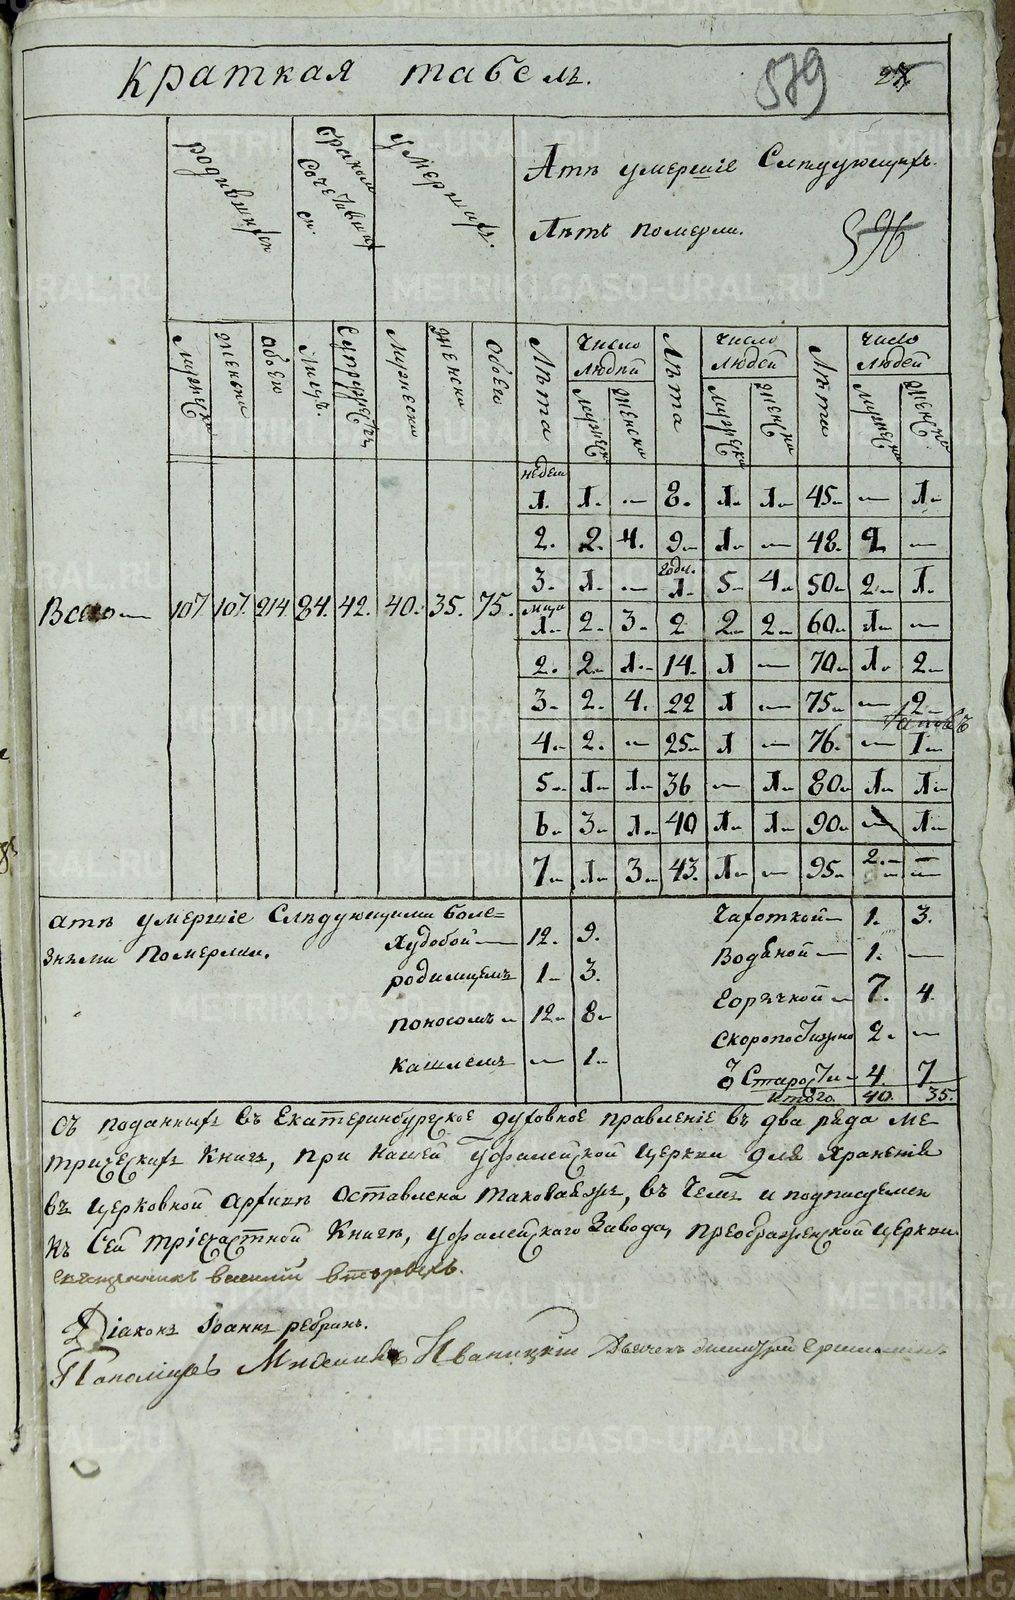 Краткая табель.
579
27
родившихся
браком сочетавшихся
умершихъ.
Атъ умершіе Слѣдующихъ
Лѣтъ померли.
596
мужеска
женска
обоего
лицъ
супружествъ
мужеска
женска
обоего
Лѣта
число людей
мужеска
женска
Лѣта
число людей
мужеска
женска
Лѣта
число людей
мужеска
женска
недели
1. 1. — 8. 1. 1. 45. — 1.
2. 2. 4. 9. 1. — 48. 2 —
годы.
3. 1. — 1. 5. 4. 50. 2. 1.
Всего — 107 107. 214 84. 42. 40. 35. 75.
1. 2. 3. 2 2. 2. 60. 1. —
2. 2. 1. 14. 1 — 70. 1. 2.
3. 2. 4. 22 1 — 75. — 2.
4. 2. — 25. 1 — 76. — 1.
5. 1. 1. 36 — 1. 80. 1. 1.
6. 3. 1. 40 1. 1. 90. — 1.
7. 1. 3. 43. 1. — 95. 2. —
атъ умершіе Слѣдующими боле=
знѣми Померли.
Худобой — 12. 9.
родимцемъ 1. 3.
поносомъ 12. 8.
кашлемъ — 1.
Чахоткой 1. 3.
Водяной 1. —
Горячкой 7. 4.
Скоропостижно 2. —
Старости 4. 7
Итого. 40. 35.
Съ поданныхъ въ Екатеринбургское духовное правленіе въ два ряда ме=
трическихъ Книгъ, при нашей Уфалейской церкви для Храненія
въ церковной архивѣ Оставлена таковаяжъ, въ Чемъ и подписуемся
Къ Сей тріечастной Книгѣ, уфалейскаго Завода, преображенской церкви
священникъ
Діаконъ Іоаннъ ребринъ.
Ивановицкій